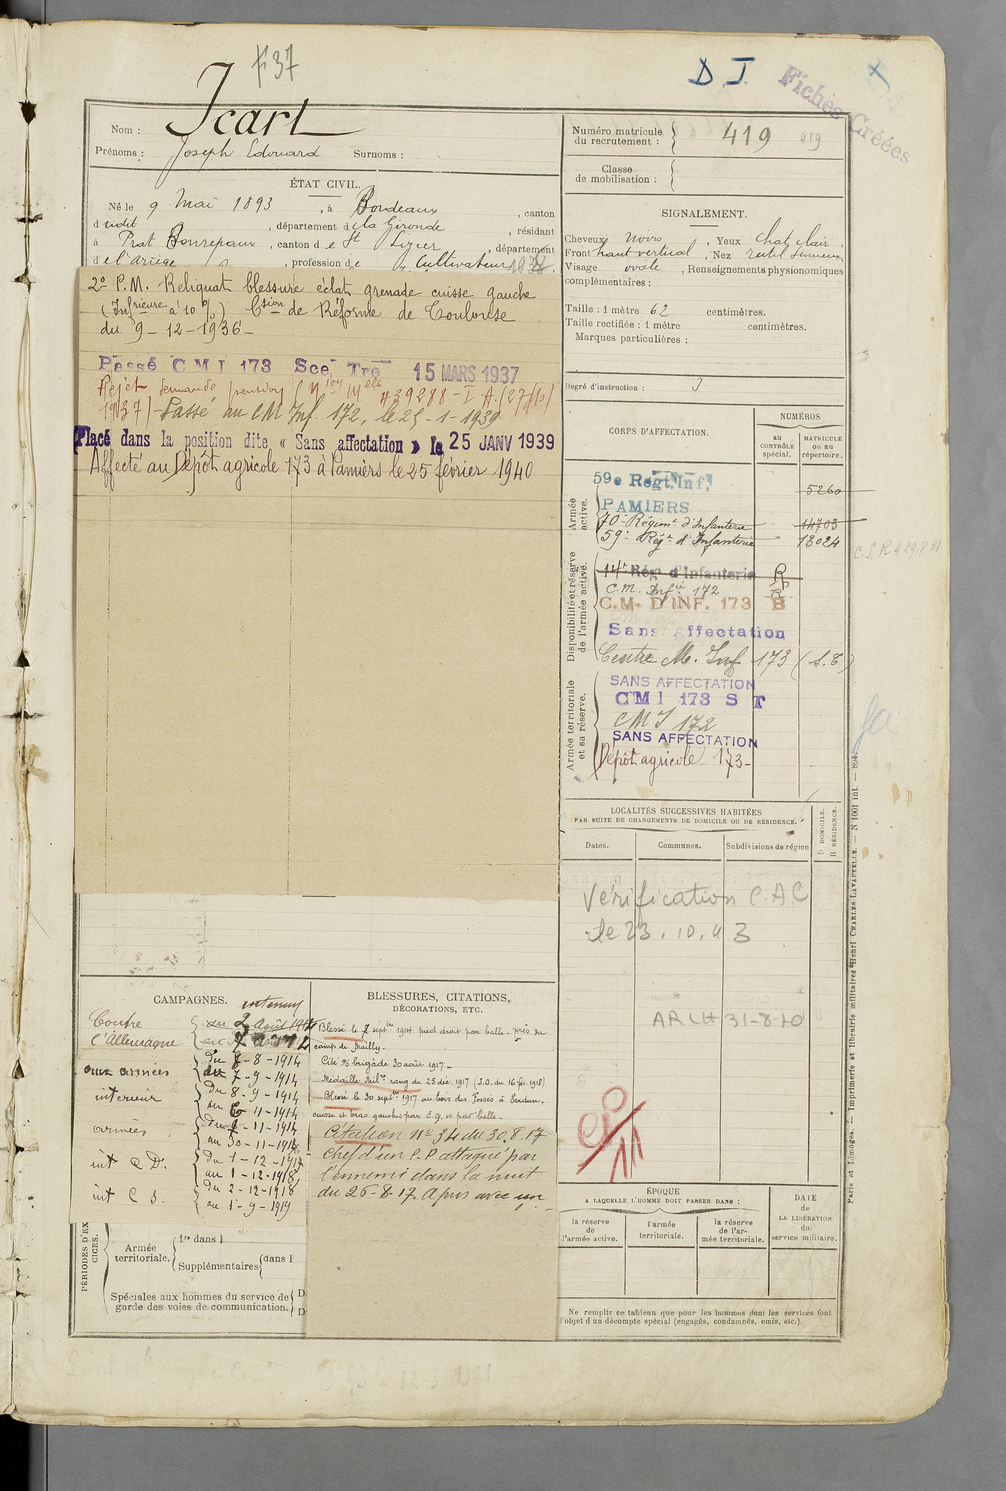 F 37
D J.
Fiches Créées
Nom : Icart
Prénoms : Joseph Edouard Surnoms :
ÉTAT CIVIL.
Né le 9 Mai 1893, à Bordeaux, canton
dudit, département de la Gironde, résidant
à Prat Bonrepaux, canton de St Lizier, département
de l'Ariège, profession de Cultivateur
2° P.M. Reliquat blessure éclat grenade cuisse gauche
(Infrieure à 10 %) Csion de Réforme de Toulouse
du 9-12-1936-
Passé C M I 173 Sce Tre 15 MARS 1937
Rejet demande pension
1937) Passé au CM Inf. 172, le 25-1-1939
Placé dans la position dite « Sans affectation » le 25 JANV 1939
Affecté au Dépôt agricole 173 à Pamiers le 25 février 1940
CAMPAGNES.
Contre
l'Allemagne
intérieur
du 2 Août 1914
aux armées
du 8-8-1914
au 7-9-1914
intérieur
du 8-9-1914
au 6-11-1914
armées
du 7-11-1914
au 30-11-1917
int C D.
du 1-12-1917
au 1-12-1918
int C S.
du 2-12-1918
au 1-9-1919
BLESSURES, CITATIONS,
DÉCORATIONS, ETC.
Blessé le 7 septbre 1914 pied droit par balle - près du
camp de Mailly.
Cité % brigade 30 août 1917 -
Médaille Milre rang du 25 déc. 1917 (J.O. du 16 fév. 1918)
Blessé le 30 septbre 1917 au bois des Fossés à Verdun.
cuisse et bras gauches par E.G. et par balle -
Citation n° 34 du 30.8.17
Chef d'un P.P attaqué par
l'ennemi dans la nuit
du 25-8-17. A pris avec un
PÉRIODES D'EXERCICES.
Armée
territoriale.
1re dans l
Supplémentaires dans l
Spéciales aux hommes du service de
garde des voies de communication.
D
D
Numéro matricule
du recrutement : 419 419
Classe
de mobilisation :
SIGNALEMENT.
Cheveux noirs, Yeux chat clair.
Front haut vertical, Nez rectil sinueux
Visage ovale, Renseignements physionomiques
complémentaires :
Taille : 1 mètre 62 centimètres.
Taille rectifiée : 1 mètre centimètres.
Marques particulières :
Degré d'instruction : 3
CORPS D'AFFECTATION.
NUMÉROS
AU
CONTRÔLE
spécial.
MATRICULE
OU AU
répertoire.
Armée
active.
59e Régt. Inf.
PAMIERS
5260
70e Régimt d'Infanterie 14703
59e Régt d'Infanterie 13024
Disponibilité et réserve
de l'armée active.
14e Régt d'Infanterie R
C.M. Infie 172 R
C.M. D'INF. 173 B
Sans Affectation
Centre M. Inf 173 (S.T)
Armée territoriale
et sa réserve.
SANS AFFECTATION
CMI 173 S T
CMI 172
SANS AFFECTATION
Dépôt agricole 173-
LOCALITÉS SUCCESSIVES HABITÉES
PAR SUITE DE CHANGEMENTS DE DOMICILE OU DE RÉSIDENCE.
Dates.
Communes.
Subdivisions de région
D DOMICILE.
R RÉSIDENCE.
Vérification C.A.C
le 23.10.43
11
ÉPOQUE
A LAQUELLE L'HOMME DOIT PASSER DANS :
la réserve
de
l'armée active.
l'armée
territoriale.
la réserve
de l'ar-
mée territoriale.
DATE
de
LA LIBÉRATION
du
service militaire.
Ne remplir ce tableau que pour les hommes dont les services font
l'objet d'un décompte spécial (engagés, condamnés, omis, etc.).
Paris et Limoges. — Imprimerie et librairie militaires Henri CHARLES-LAVAUZELLE. — N 1001 int.